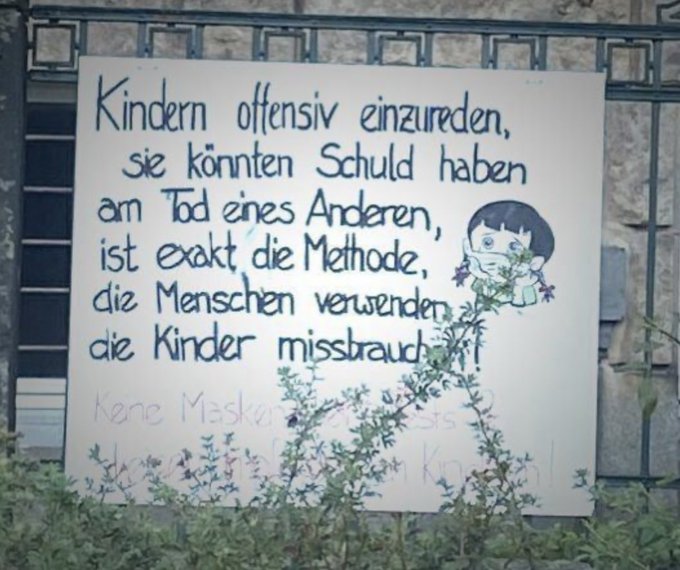 Kindern offensiv einzureden,
sie könnten Schuld haben
am Tod eines Anderen,
ist exakt die Methode,
die Menschen verwenden
die Kinder missbrauch
Kene Masken